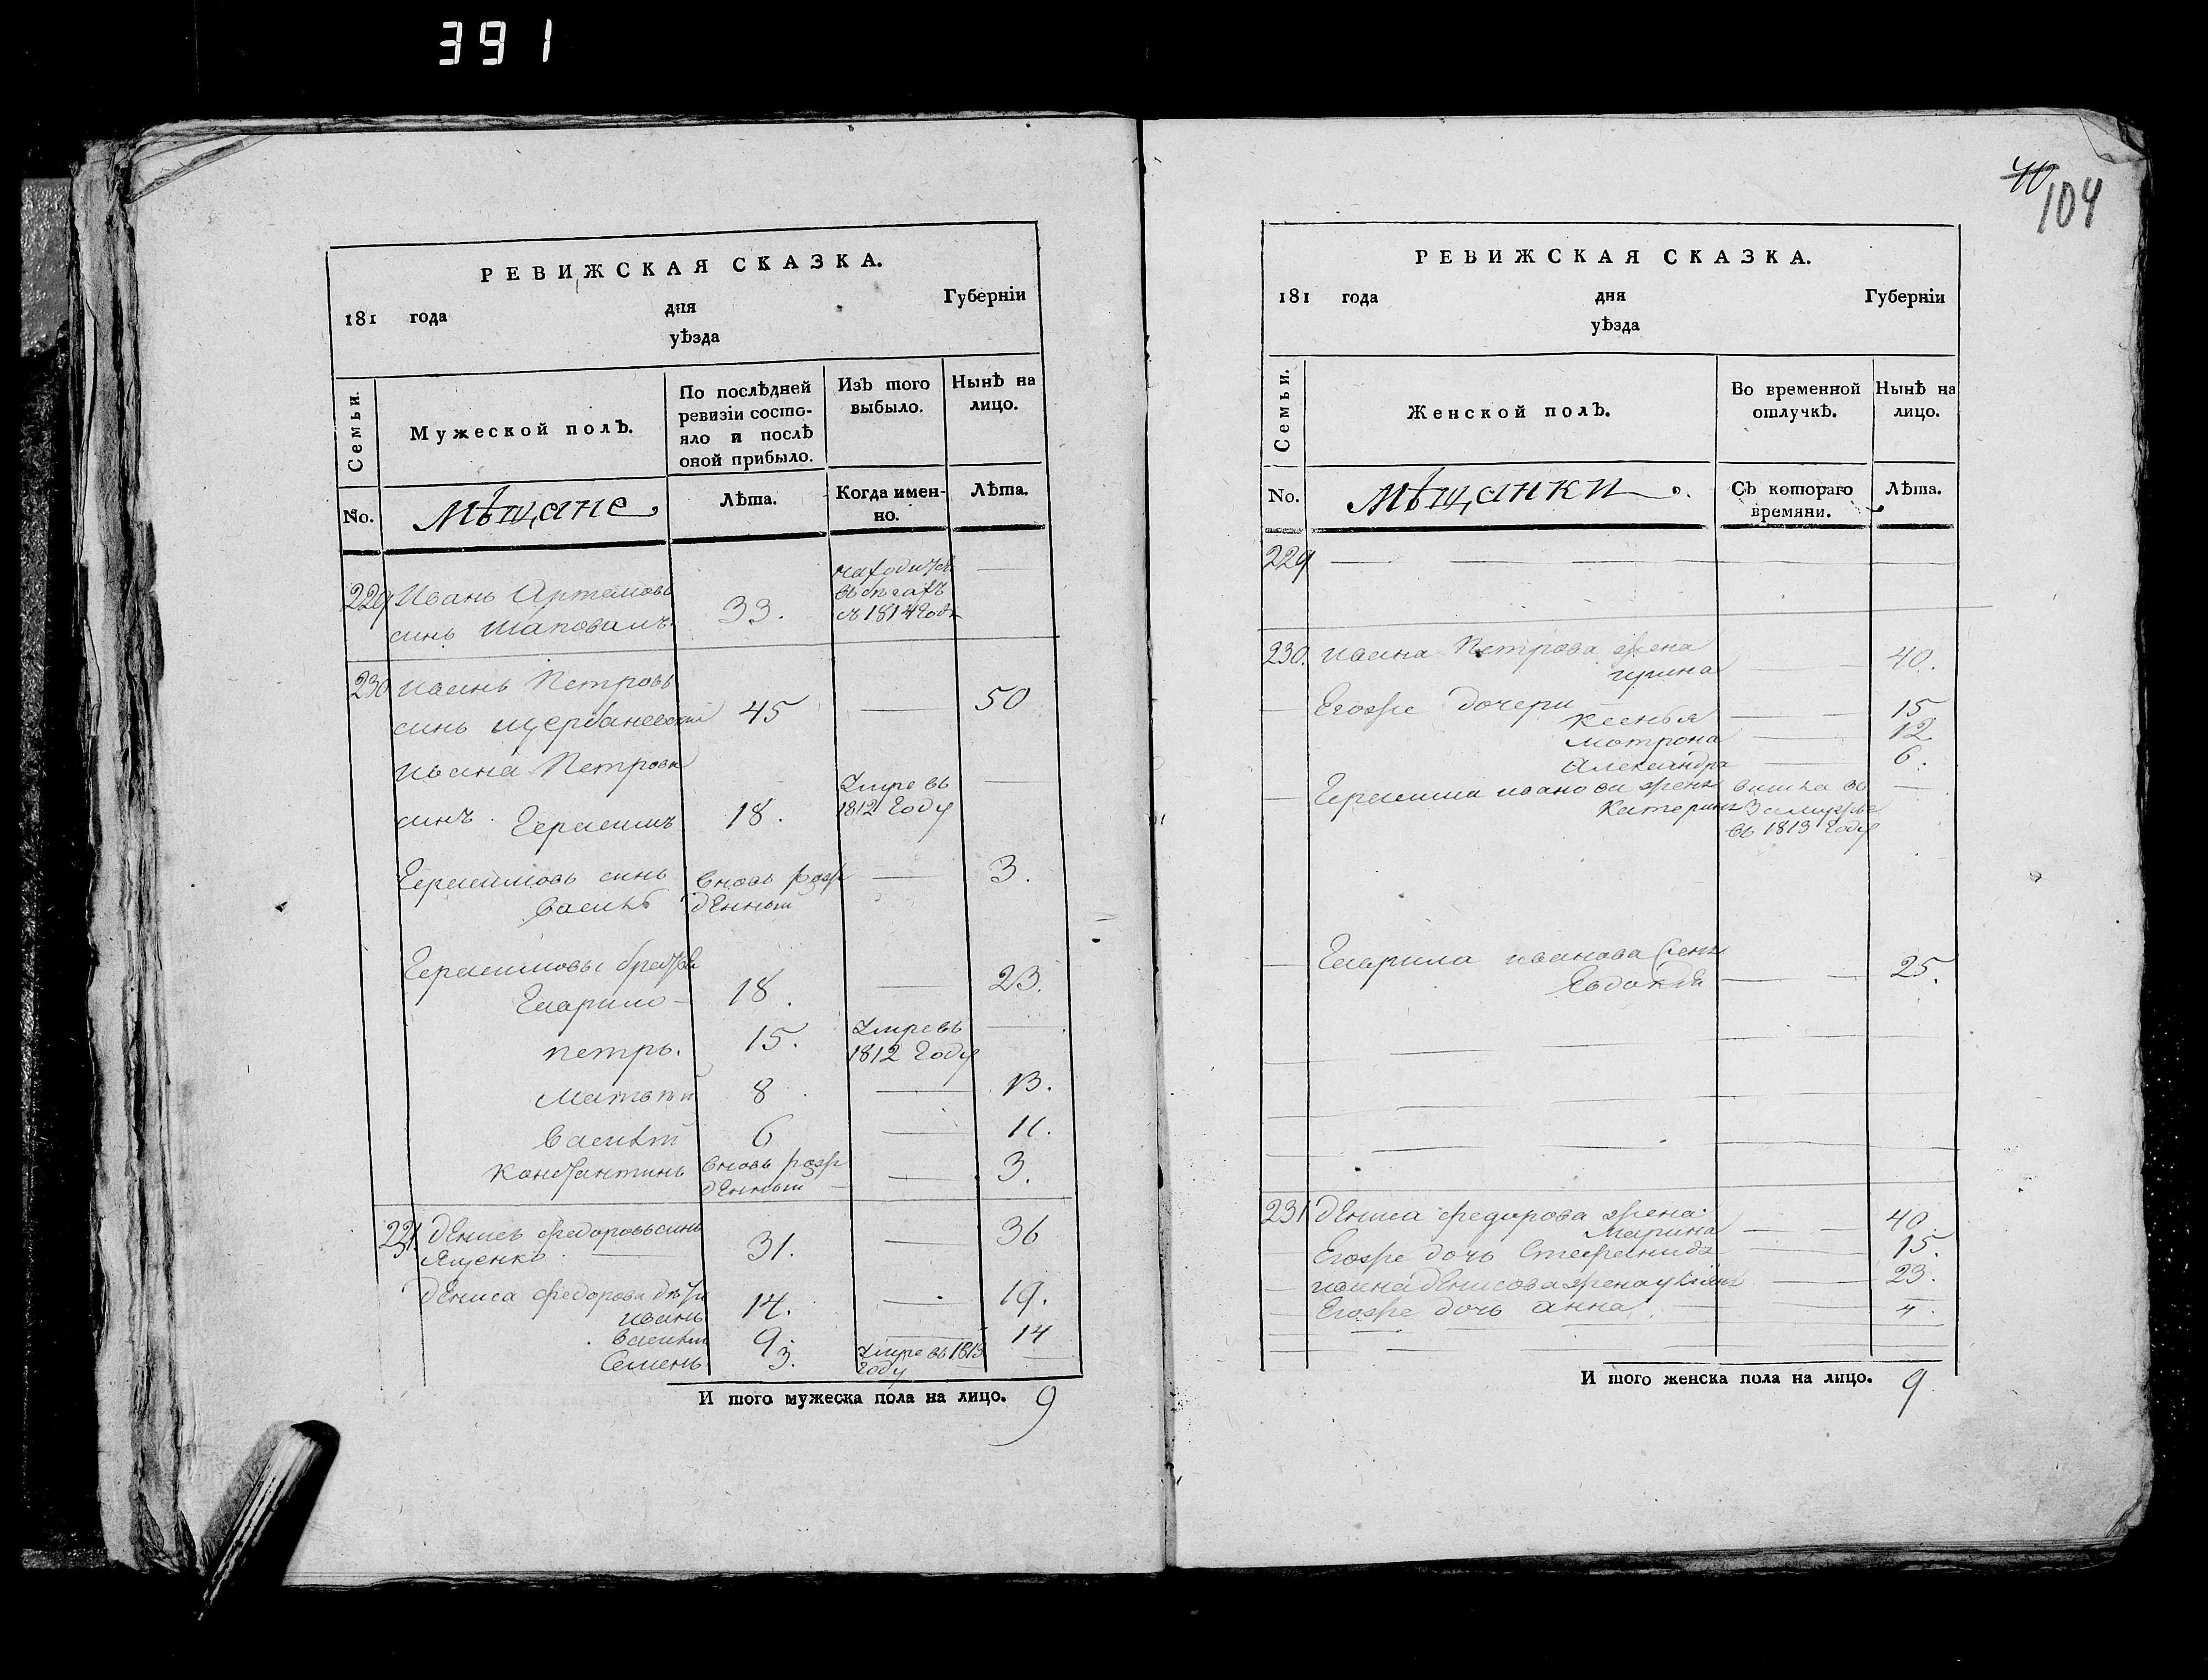 391
РЕВИЖСКАЯ СКАЗКА.
181 года дня Губерніи
уѣзда
Семьи.
Мужеской полЪ.
По послѣдней ревизіи состояло и послѣ оной прибыло.
ИзЪ того выбыло.
НынѢ на лицо.
No.
Мѣщане
Лѣта.
Когда именно.
Лѣта.
229 Иванъ Артемовъ
синъ Шаповалъ. 33.
въ 1814 Годѣ
230 Иванъ Петровъ
синъ Щербаневский 45 50
Ивана Петрова
синъ. Герасимъ 18. Умре въ
1812 Году
Герасимовъ синъ вновь рож 3.
Василь денный
Герасимовы братья
Гаврило 18. 23.
Петръ. 15. Умре въ
1812 Году
Матвѣй 8 13.
Василий 6 11.
Константинъ вновь рож 3.
денный
231. Денисъ Федоровъ синъ 36
Ященко 31.
Дениса Федорова дѣти
Иванъ 14. 19.
Василий 9. 14
Семенъ 3. Умре въ 1813
Году
И того мужеска пола на лицо. 9
40
104
РЕВИЖСКАЯ СКАЗКА.
181 года дня Губерніи
уѣзда
Семьи.
Женской полЪ.
Во временной отлучкѣ.
НынѢ на лицо.
No.
Мѣщанки.
СЪ котораго времяни.
Лѣта.
229
230. Ивана Петрова жена
Ирина 40.
Егоже дочери
Ксенья 15
Мотрона 12
Александра 6.
Герасима Иванова жена вишла въ
Катерина Замужье
въ 1813 Году
Гаврила Иванова жена
Евдокія 25.
231 Дениса Федорова жена
Марина 40
Егоже дочь Стефанида 15.
Ивана Денисова жена 23.
Егоже дочь Анна
И того женска пола на лицо. 9